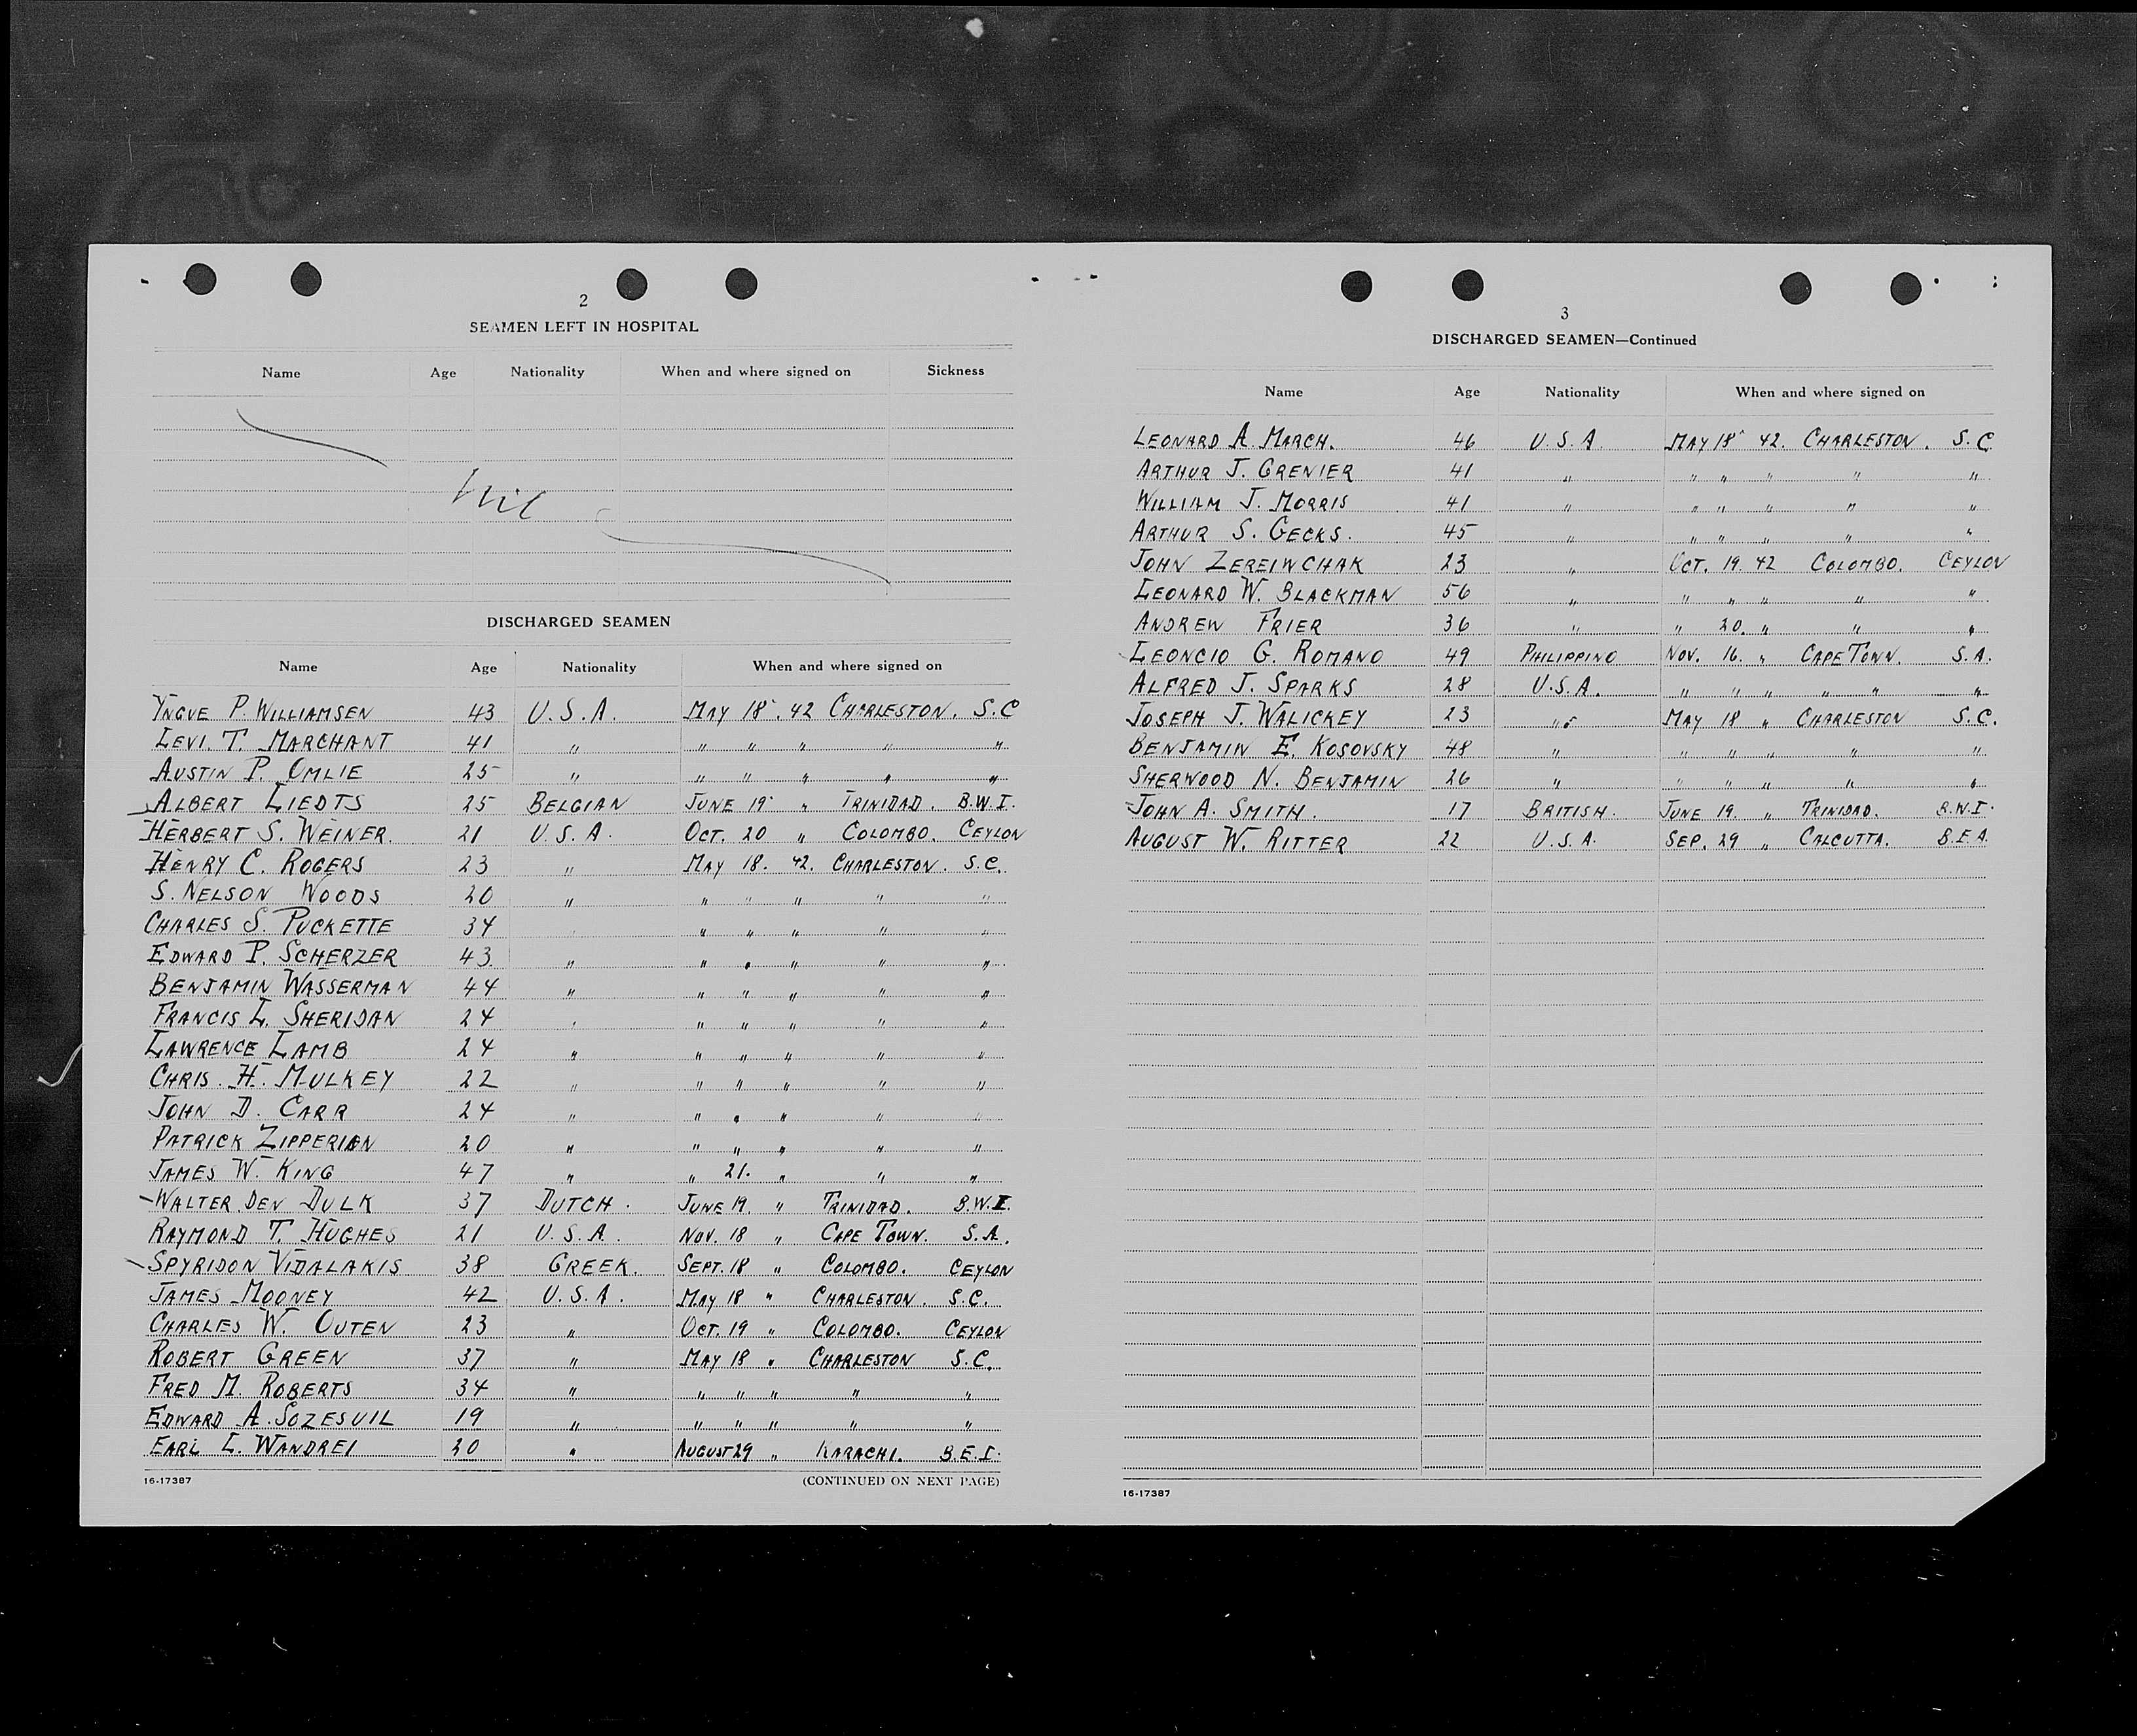 2
SEAMEN LEFT IN HOSPITAL
Name Age Nationality When and where signed on Sickness
Nil
DISCHARGED SEAMEN
Name Age Nationality When and where signed on
YNGVE P. WILLIAMSEN 43 U.S.A. MAY 18. 42 CHARLESTON. S.C
LEVI. T. MARCHANT 41 " " " " " "
AUSTIN P. OMLIE 25 " " " " " "
ALBERT LIEDTS 25 BELGIAN JUNE 19 " TRINIDAD. B.W.I.
HERBERT S. WEINER. 21 U.S.A. OCT. 20 " COLOMBO. CEYLON
HENRY C. ROGERS 23 " MAY 18. 42. CHARLESTON. S.C.
S. NELSON WOODS 20 " " " " " "
CHARLES S. PUCKETTE 34 " " " " " "
EDWARD P. SCHERZER 43. " " " " " "
BENJAMIN WASSERMAN 44 " " " " " "
FRANCIS L. SHERIDAN 24 " " " " " "
LAWRENCE LAMB 24 " " " " " "
CHRIS. H. MULKEY 22 " " " " " "
JOHN D. CARR 24 " " " " " "
PATRICK ZIPPERIAN 20 " " " " " "
JAMES W. KING 47 " " 21. " " "
WALTER DEN DULK 37 DUTCH. JUNE 19. " TRINIDAD. B.W.I.
RAYMOND T. HUGHES 21 U.S.A. NOV. 18 " CAPE TOWN. S.A.
SPYRIDON VIDALAKIS 38 GREEK. SEPT. 18 " COLOMBO. CEYLON
JAMES MOONEY 42 U.S.A. MAY 18 " CHARLESTON. S.C.
CHARLES W. OUTEN 23 " OCT. 19 " COLOMBO. CEYLON
ROBERT GREEN 37 " MAY 18 " CHARLESTON S.C.
FRED M. ROBERTS 34 " " " " " "
EDWARD A. SOZESUIL 19 " " " " " "
EARL L. WANDREI 20 " AUGUST 29 " KARACHI. B.E.I.
16-17387 (CONTINUED ON NEXT PAGE)
3
DISCHARGED SEAMEN—Continued
Name Age Nationality When and where signed on
LEONARD A. MARCH. 46 U.S.A. MAY 18 42. CHARLESTON. S.C.
ARTHUR J. GRENIER 41 " " " " " "
WILLIAM J. MORRIS 41 " " " " " "
ARTHUR S. GECKS. 45 " " " " " "
JOHN ZEREIWCHAK 23 " OCT. 19. 42 COLOMBO. CEYLON
LEONARD W. BLACKMAN 56 " " " " " "
ANDREW FRIER 36 " " 20. " " "
LEONCIO G. ROMANO 49 PHILIPPINO NOV. 16. " CAPE TOWN. S.A.
ALFRED J. SPARKS 28 U.S.A. " " " " " "
JOSEPH J. WALICKEY 23 " MAY 18 " CHARLESTON S.C.
BENJAMIN E. KOSOVSKY 48 " " " " " "
SHERWOOD N. BENJAMIN 26 " " " " " "
JOHN A. SMITH. 17 BRITISH. JUNE 19. " TRINIDAD. B.W.I.
AUGUST W. RITTER 22 U.S.A. SEP. 29 " CALCUTTA. B.E.A.
16-17387